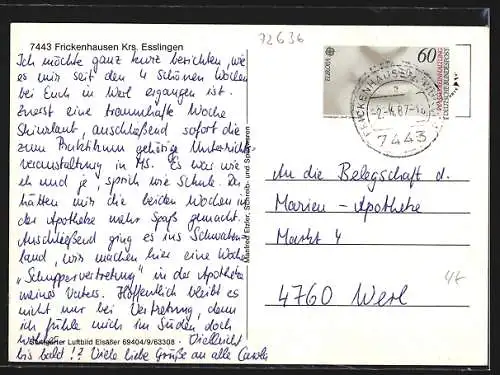 7443 Frickenhausen Krs. Esslingen
Ich möchte ganz kurz berichten, wie
es mir seit den 4 schönen Wochen
bei Euch in Werl ergangen ist.
Zuerst eine traumhafte Woche
Skiurlaub, anschließend sofort die
zum Praktikum gehörige Unterrichts-
veranstaltung in MS. Es war wie
eh und je, sprich wie Schule. Da
hätten mir die beiden Wochen in
der Apotheke mehr Spaß gemacht.
Anschließend ging es ins Schwaben-
land, wir machen hier eine Woche
"Schnuppervertretung" in der Apotheke
meines Vaters. Hoffentlich bleibt es
nicht nur bei Vertretung, denn
ich fühle mich im Süden doch
wohler. Vielleicht
Stuttgarter Luftbild Elsäßer 69404/9/63308
bis bald!? Viele liebe Grüße an alle Carola
Manfred Etzler, Schreib- und Spielwaren
72636
EUROPA
60
DEUTSCHE BUNDESPOST
FRICKENHAUSEN
-2.-4.87
7443
An die Belegschaft d.
Marien-Apotheke
Markt 4
4760 Werl